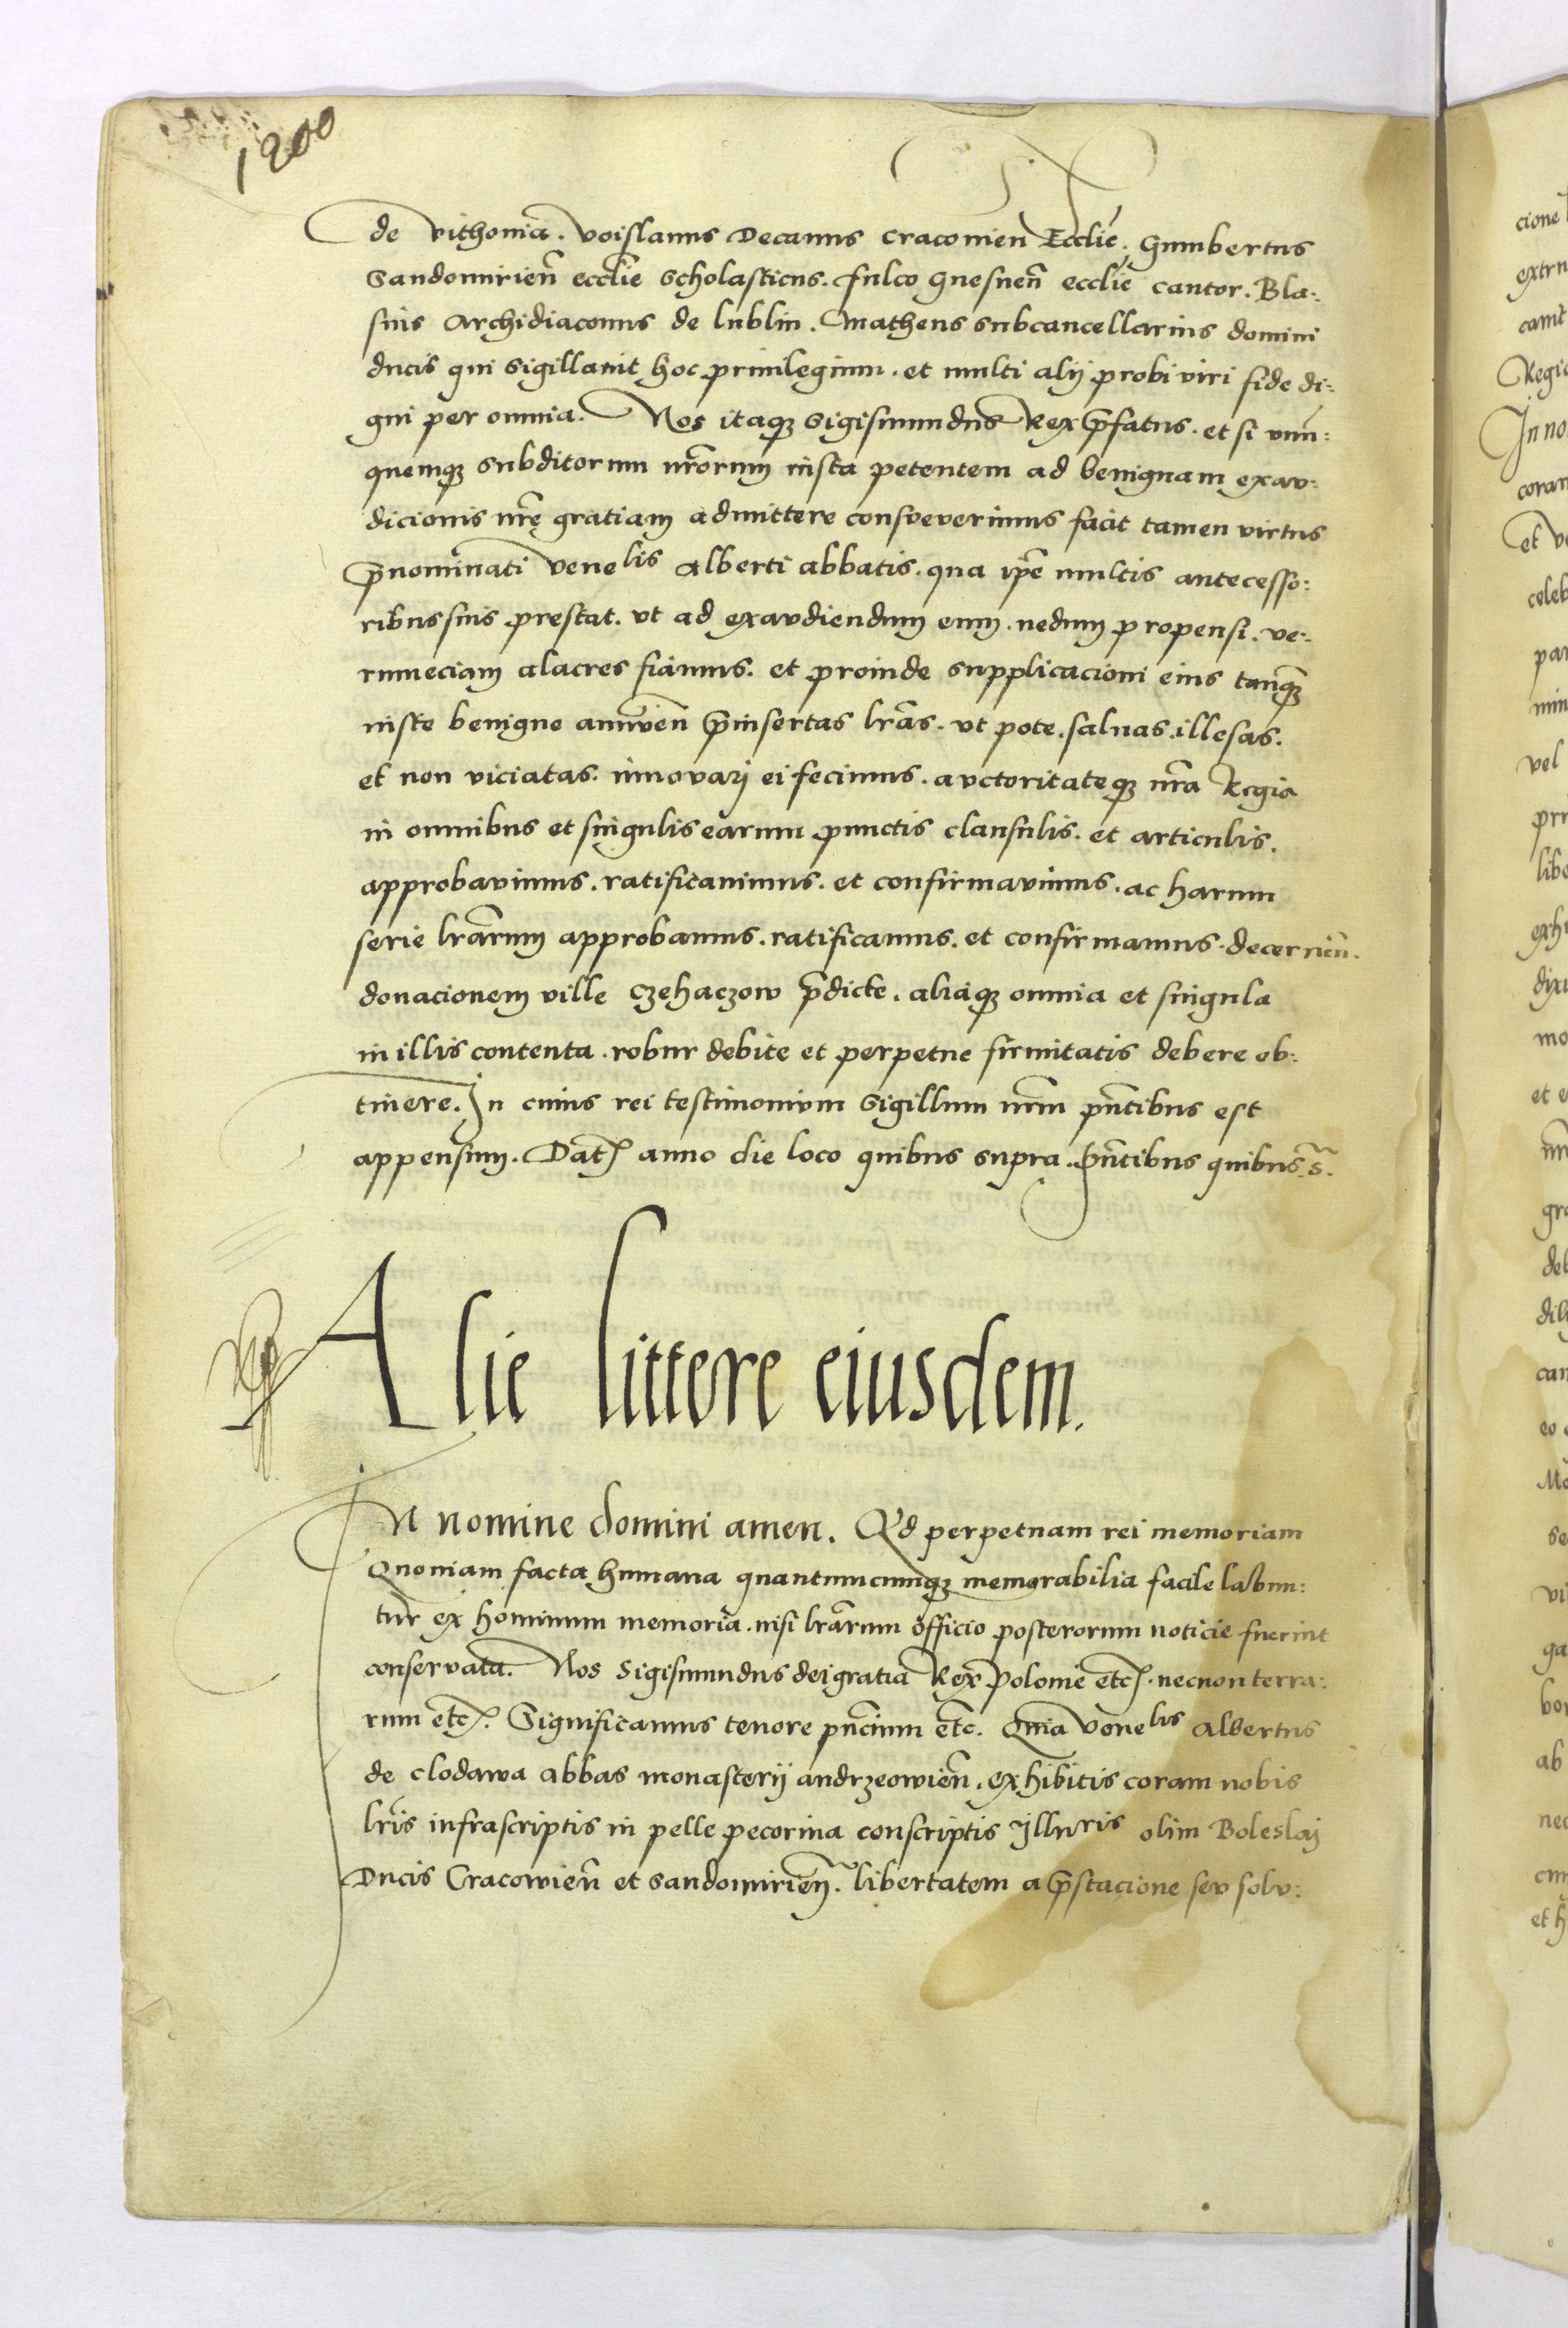 1200
de vithonia. Voislaus Decanus Cracouien Ecclie. Gumbertus
Sandomirien ecclie Scholasticus. Fulco Gnesnen ecclie cantor. Bla-
sius Archidiaconus de lublin. Matheus subcancellarius domini
ducis qui sigillauit hoc priuilegium. et multi alij probi viri fide di-
gni per omnia. Nos itaq3 Sigismundus Rex p̄fatus. et si vnu-
quemq3 subditorum nr̄orum iusta petentem ad benignam exav-
dicionis nr̄e gratiam admittere consveverimus facit tamen virtus
p̄nominati venelis Alberti abbatis. qua ip̄e multis antecesso-
ribus suis prestat. vt ad exavdiendum eum. nedum propensi. ve-
rumeciam alacres fiamus. et proinde supplicacioni eius tanq̄3
iuste benigne annuen̄ p̄insertas lr̄as. vt pote. saluas. illesas.
et non viciatas. innovarj ei fecimus. avctoritateq3 nr̄a Regia
in omnibus et singulis earum punctis clausulis. et articulis.
approbavimus. ratificauimus. et confirmavimus. ac harum
serie lr̄arum approbamus. ratificamus. et confirmamus. decernen̄.
donacionem ville Czehaczow p̄dicte. aliaq3 omnia et singula
in illis contenta. robur debite et perpetue firmitatis debere ob-
tinere. In cuius rei testimonivm Sigillum nr̄m pn̄tibus est
appensum. Dat̄ anno die loco quibus supra. Pn̄tibus quibus s̄.
Alie littere eiusdem.
In nomine domini amen. Ad perpetuam rei memoriam
Quoniam facta humana quantumcumq3 memorabilia facile labun-
tur ex hominum memoria. nisi lr̄arum officio posterorum noticie fuerint
conservata. Nos Sigismundus dei gratia Rex Polonie etc̄. necnon terra-
rum etc̄. Significamus tenore pn̄cium etc̄. Quia venelis Albertus
de clodawa abbas monasterij andrzeowien̄. exhibitis coram nobis
lr̄is infrascriptis in pelle pecorina conscriptis Illuris olim Boleslaj
Ducis Cracowien̄ et Sandomirien̄. libertatem a p̄stacione sev solv-